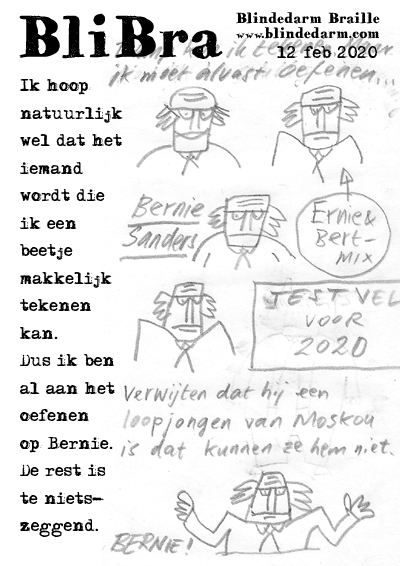 BliBra
Blindedarm Braille
www.blindedarm.com
12 feb 2020
ik moet alvast oefenen...
Ik hoop
natuurlijk
wel dat het
iemand
wordt die
ik een
beetje
makkelijk
tekenen
kan.
Dus ik ben
al aan het
oefenen
op Bernie.
De rest is
te niets-
zeggend.
Bernie
Sanders
Ernie &
Bert-
mix
TESTVEL
VOOR
2020
Verwijten dat hij een
loopjongen van Moskou
is dat kunnen ze hem niet.
BERNIE!